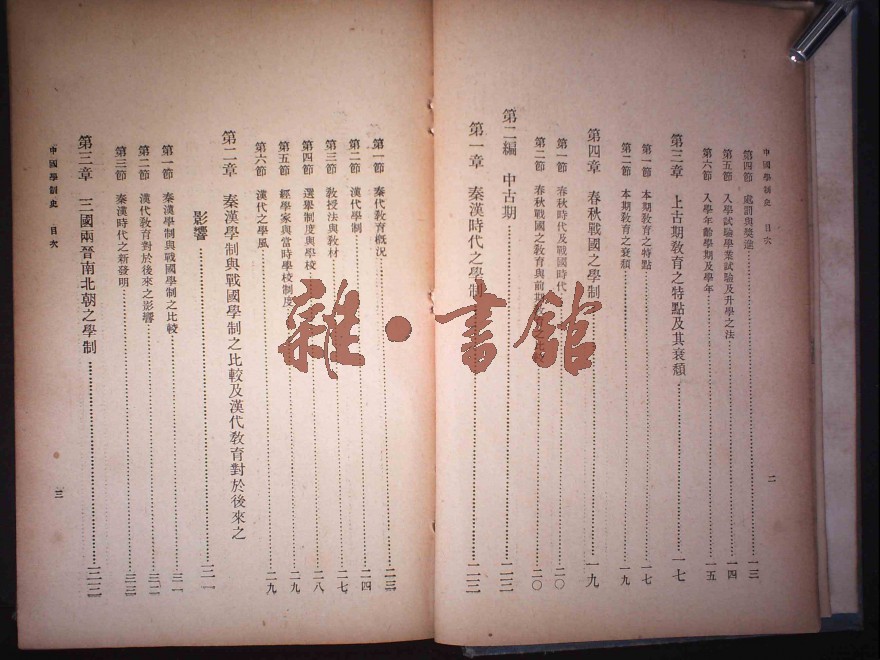 中國學制史 目次
第四節 處罰與獎進 一三
第五節 入學試驗學業試驗及升學之法 一四
第六節 入學年齡學期及學年 一五
第三章 上古期教育之特點及其衰頹 一七
第一節 本期教育之特點 一七
第二節 本期教育之衰頹 一九
第四章 春秋戰國之學制 一九
第一節 春秋時代及戰國時代 二〇
第二節 春秋戰國之教育與前期 二〇
第二編 中古期 二三
第一章 秦漢時代之學制 二三
二
第一節 秦代教育概況 二三
第二節 漢代學制 二四
第三節 教授法與教材 二七
第四節 選舉制度與學校 二八
第五節 經學家與當時學校制度 二九
第六節 漢代之學風 二九
第二章 秦漢學制與戰國學制之比較及漢代教育對於後來之
影響 三一
第一節 秦漢學制與戰國學制之比較 三一
第二節 漢代教育對於後來之影響 三二
第三節 秦漢時代之新發明 三三
第三章 三國兩晉南北朝之學制 三三
中國學制史 目次
三
雜·書館